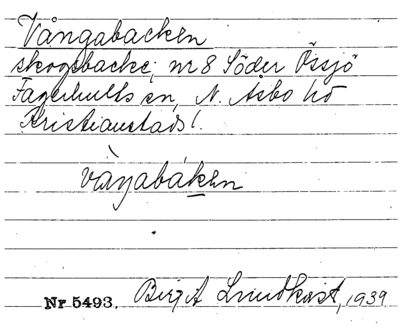 Vångabacken
skogsbacke; nr 8 Söder Össjö
Fagerhults sn, N. Åsbo hd
Kristianstads l.
våŋabáken
Nr 5493. Birgit Lundkvist, 1939